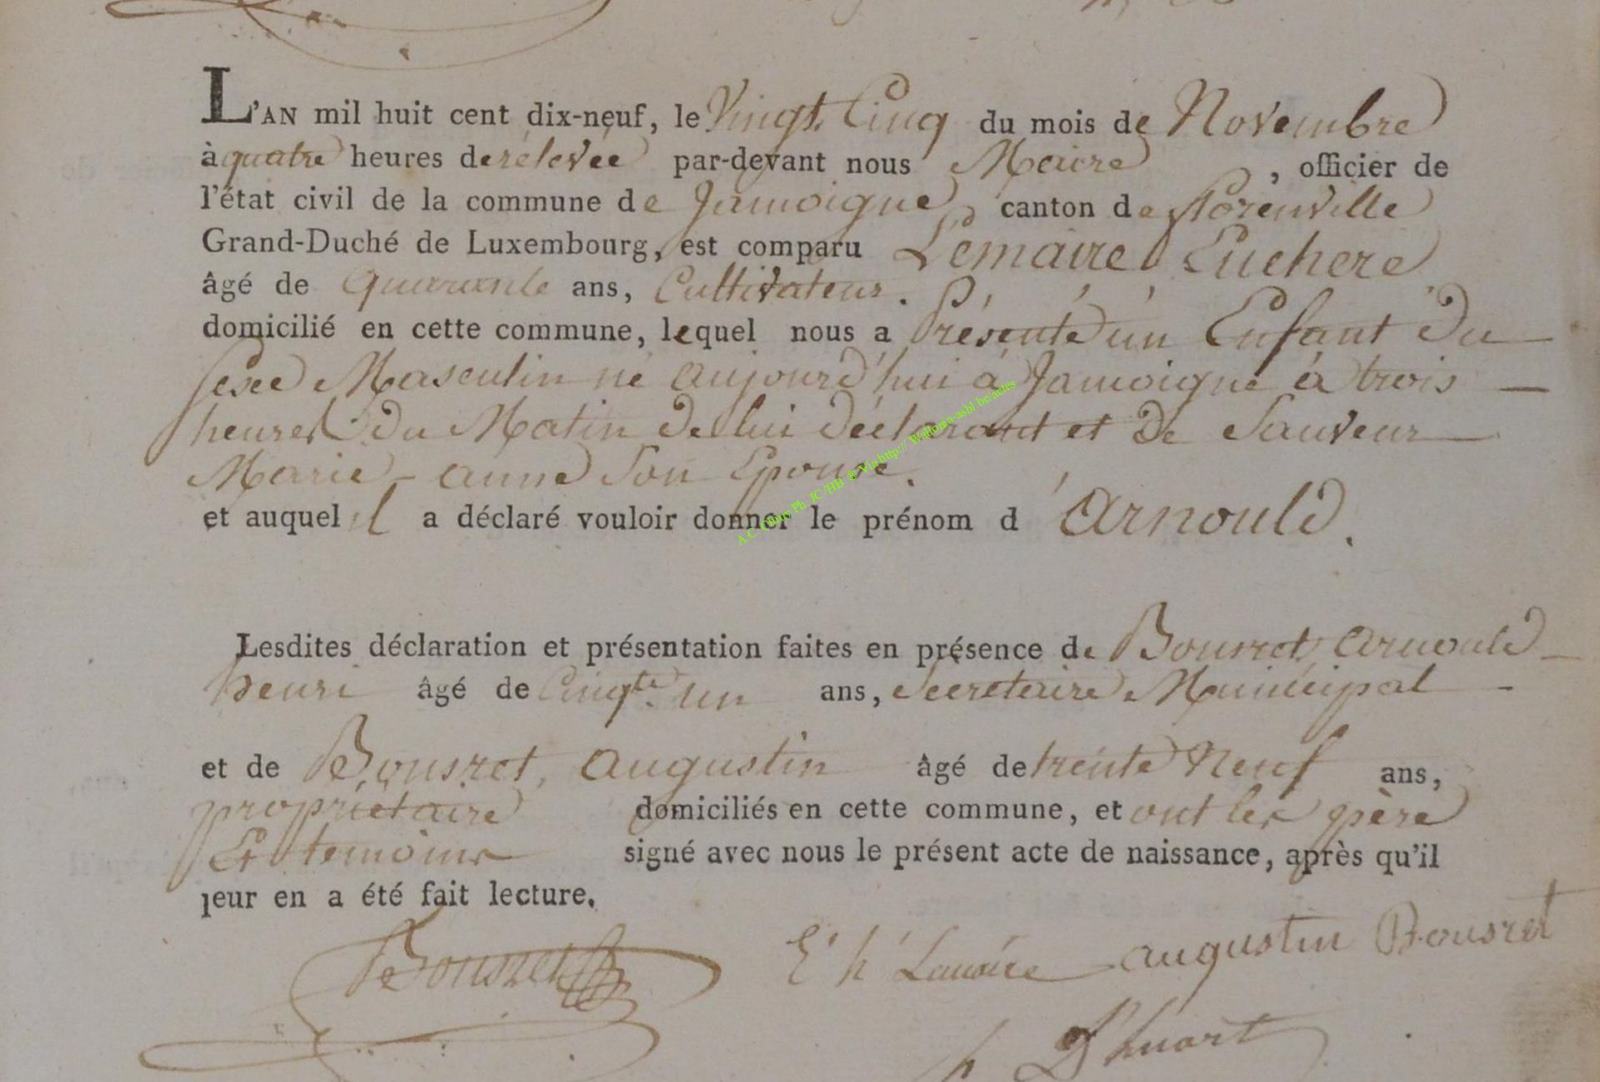 L'AN mil huit cent dix-neuf, le Vingt Cinq du mois de Novembre
à quatre heures de relevée par-devant nous Maire , officier de
l'état civil de la commune de Jamoigne canton de florenville
Grand-Duché de Luxembourg, est comparu Lemaire Euchere
âgé de Quarante ans, Cultivateur.
domicilié en cette commune, lequel nous a Présenté un Enfant du
sexe Masculin né aujourd'hui à Jamoigne à trois
heures du Matin de lui déclarant et de Sauveur
Marie-anne Son Epouse.
et auquel il a déclaré vouloir donner le prénom d'Arnould.
Lesdites déclaration et présentation faites en présence de Bousret, arnould
henri âgé de Cinqte. un ans, Secretaire Municipal
et de Bousret, augustin âgé de trente Neuf ans,
propriétaire domiciliés en cette commune, et ont les père
Et temoins signé avec nous le présent acte de naissance, après qu'il
leur en a été fait lecture.
Bousret E h Lemaire augustin Bousret